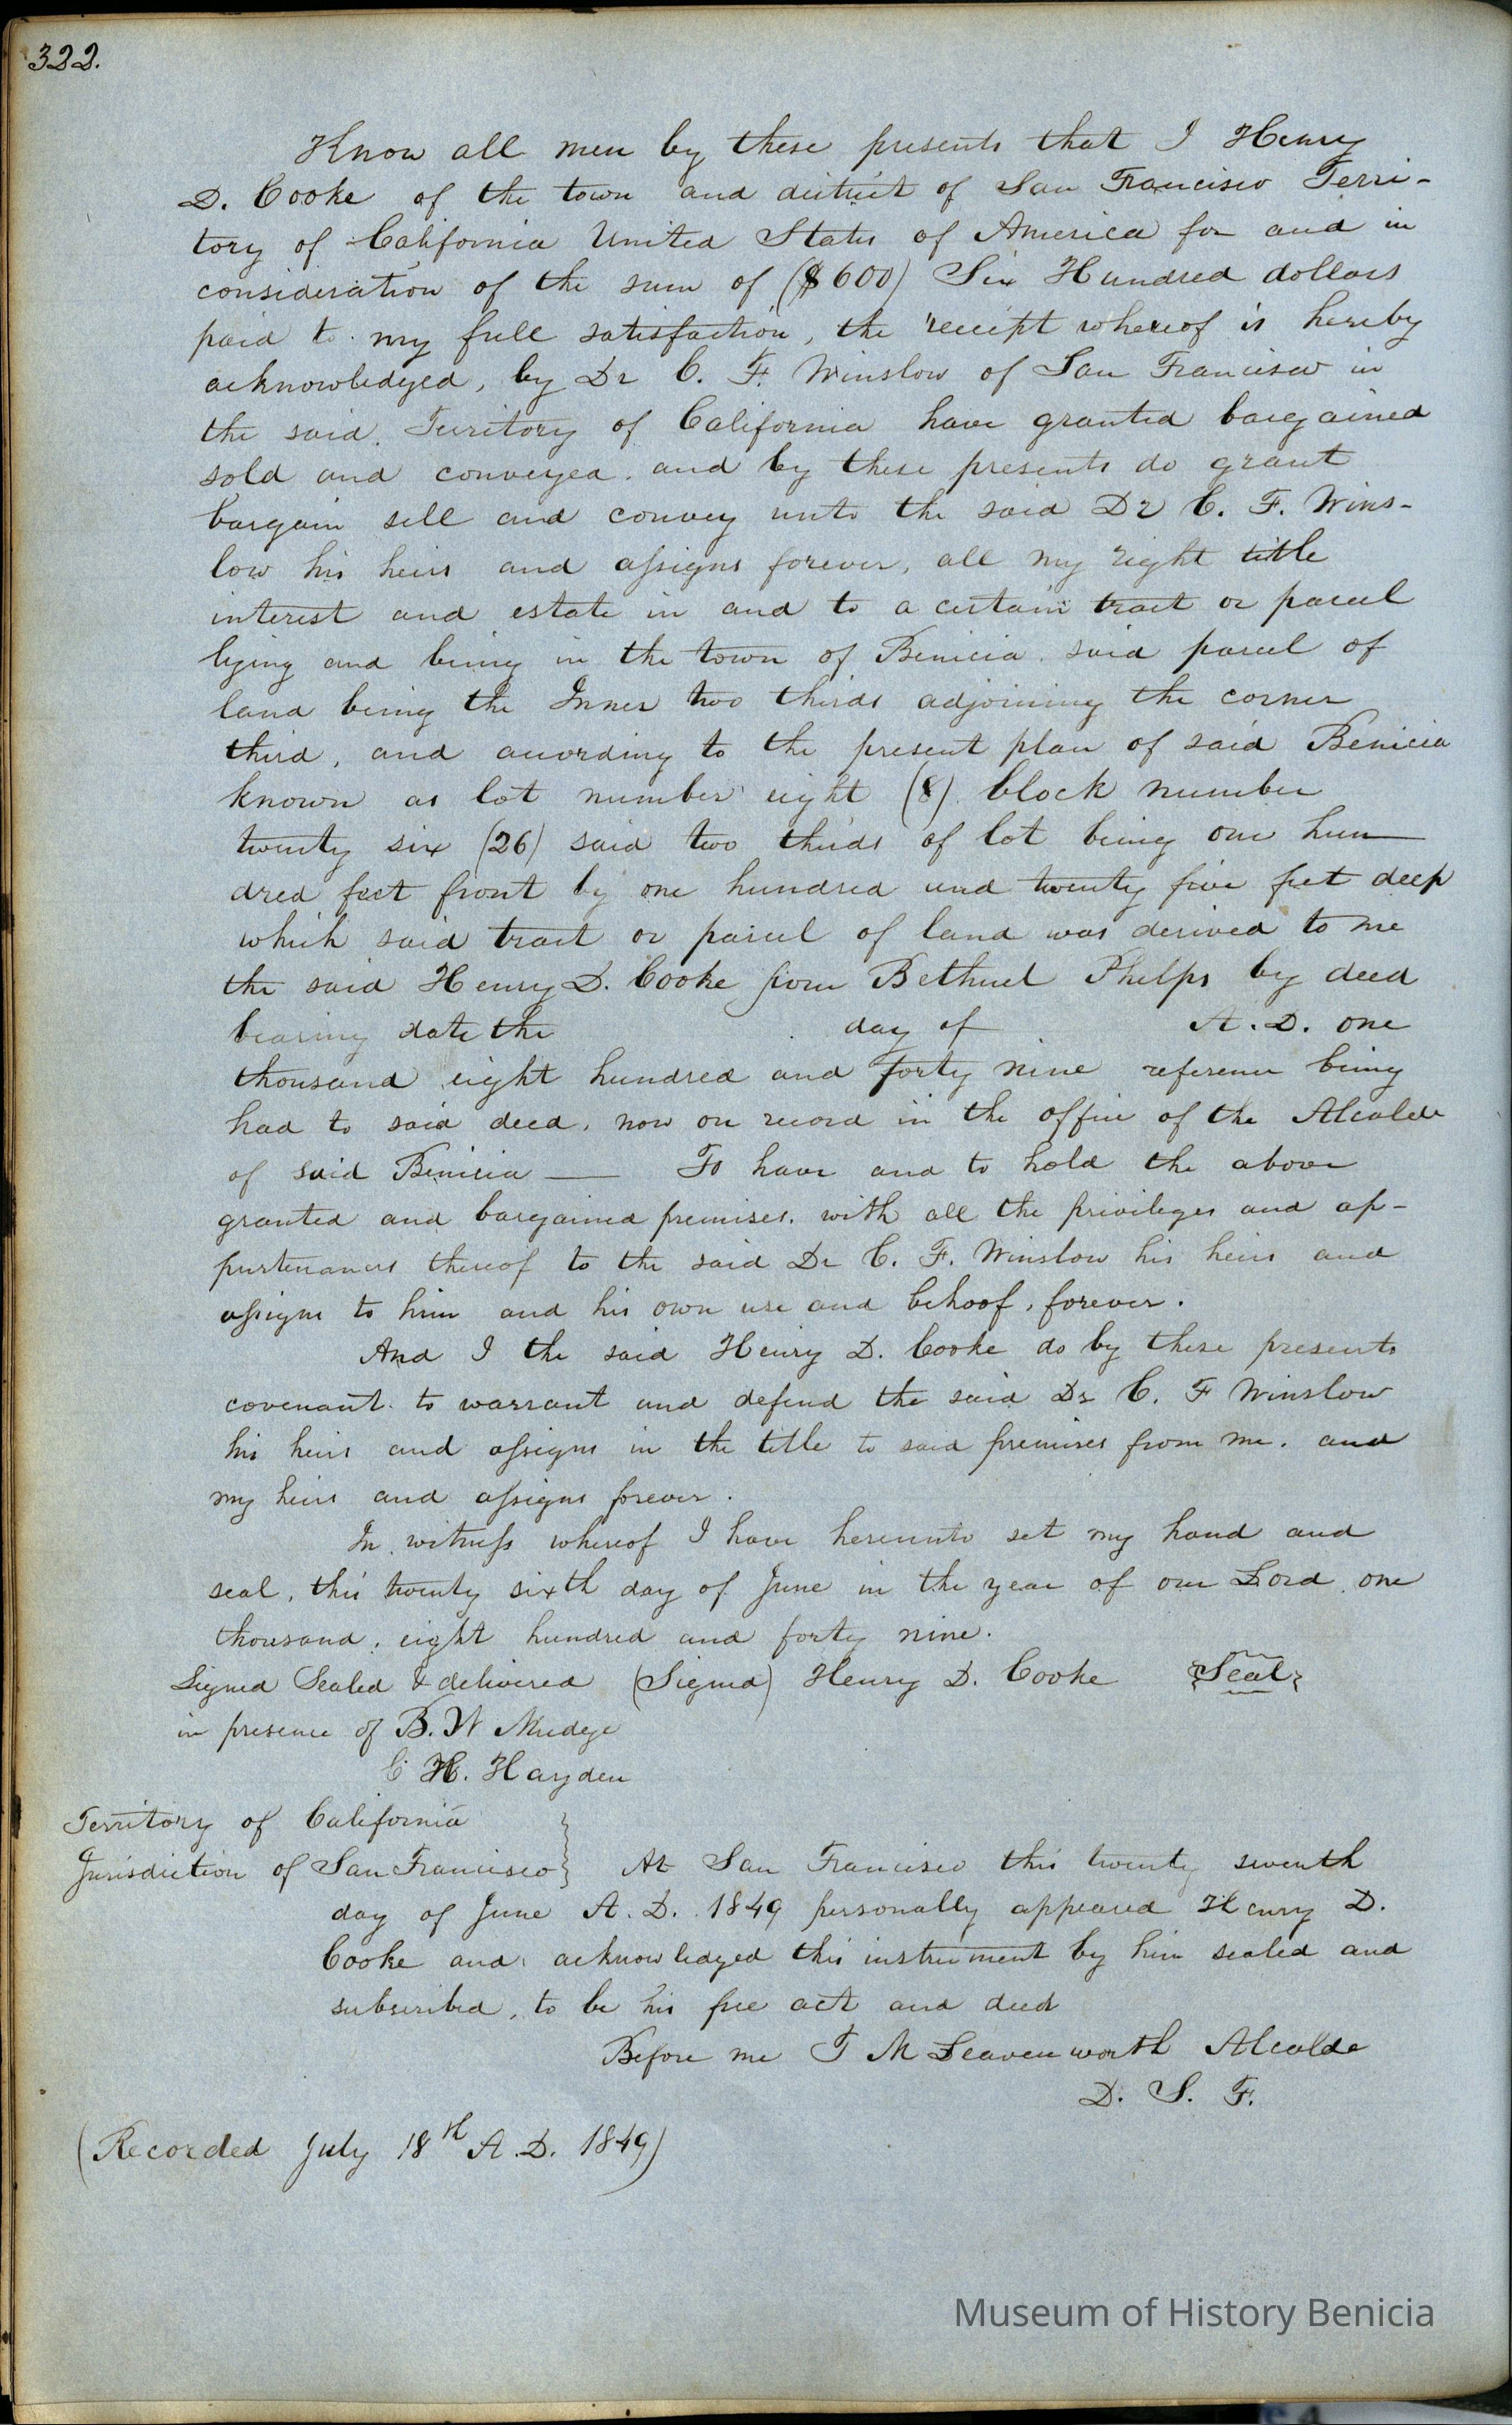 322.
Know all men by these presents that I Henry
D. Cooke of the town and district of San Francisco Terri-
tory of California United States of America for and in
consideration of the sum of ($600) Six Hundred dollars
paid to my full satisfaction, the receipt whereof is hereby
acknowledged, by Dr C. F. Winslow of San Francisco in
the said Territory of California have granted bargained
sold and conveyed and by these presents do grant
bargain sell and convey unto the said Dr C. F. Wins-
low his heirs and assigns forever, all my right title
interest and estate in and to a certain tract or parcel
lying and being in the town of Benicia said parcel of
land being the Inner two thirds adjoining the corner
third, and according to the present plan of said Benicia
known as lot number eight (8) block number
twenty six (26) said two thirds of lot being one hun
dred feet front by one hundred and twenty five feet deep
which said tract or parcel of land was derived to me
the said Henry D. Cooke from Bethuel Phelps by deed
bearing date the day of A.D. one
thousand eight hundred and forty nine reference being
had to said deed, now on record in the office of the Alcalde
of said Benicia — To have and to hold the above
granted and bargained premises, with all the privileges and ap-
purtenances thereof to the said Dr C. F. Winslow his heirs and
assigns to him and his own use and behoof, forever.
And I the said Henry D. Cooke do by these presents
covenant to warrant and defend the said Dr C. F Winslow
his heirs and assigns in the title to said premises from me. and
my heirs and assigns forever.
In witness whereof I have hereunto set my hand and
seal, this twenty sixth day of June in the year of our Lord one
thousand, eight hundred and forty nine.
Signed Sealed & delivered (Signed) Henry D. Cooke Seal
in presence of B. W Mudge
C H. Hayden
Territory of California
Jurisdiction of San Francisco } At San Francisco this twenty seventh
day of June A. D. 1849 personally appeared Henry D.
Cooke and acknowledged this instrument by him sealed and
subscribed, to be his free act and deed
Before me T M Leavenworth Alcalde
D. S. F.
(Recorded July 18th A.D. 1849)
Museum of History Benicia